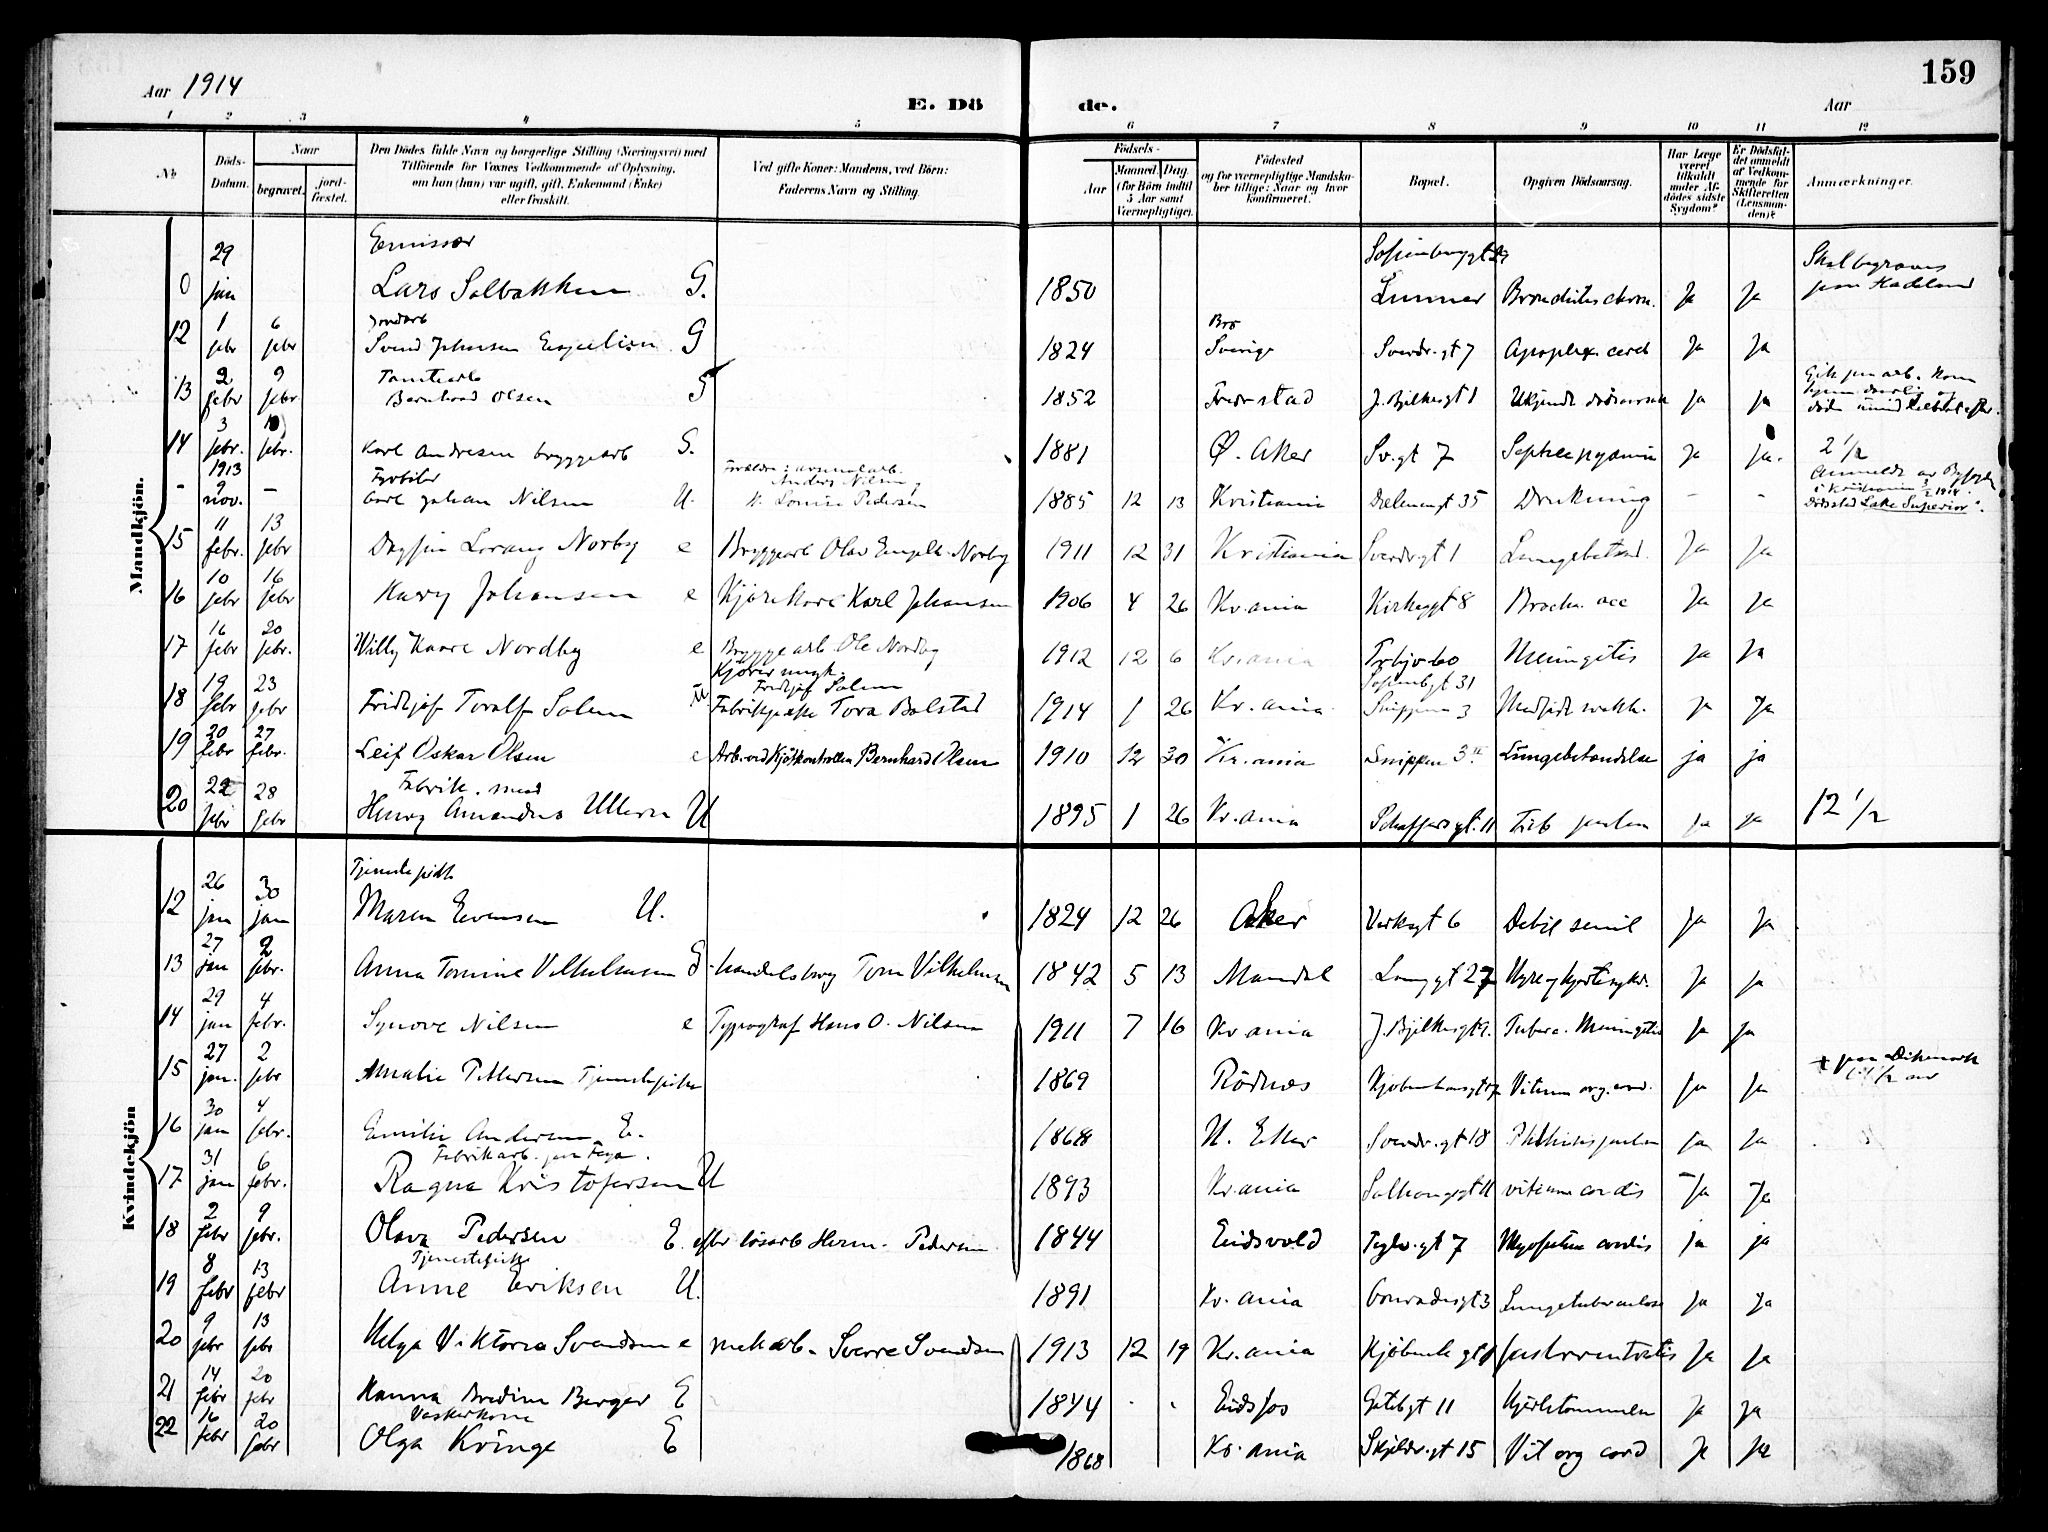 159
Aar 1914
E. Dö de.
Aar
1 2 3 4 5 6 7 8 9 10 11 12
No
Döds-Datum.
Naar
begravet.
jord-fæstet.
Den Dödes fulde Navn og borgerlige Stilling (Næringsvei) med Tilföiende for Voxnes Vedkommende af Oplysning, om han (hun) var ugift, gift, Enkemand (Enke) eller fraskilt.
Ved gifte Koner: Mandens, ved Börn: Faderens Navn og Stilling.
Födsels-
Aar
Maaned. Dag. (for Börn indtil 5 Aar samt Værnepligtige).
Födested og for værnepligtige Mandskaber tillige: Naar og hvor konfirmeret.
Bopæl.
Opgiven Dödsaarsag.
Har Læge været tilkaldt under Afdödes sidste Sygdom?
Er Dödsfaldet anmeldt af Vedkommende for Skifteretten (Lensmanden)?
Anmærkninger.
Mandkjön.
0 29 jan Emissær Lars Solbakken G. 1850 Sofienberggt Lunner Ja Ja Skal begraves paa Hadeland
12 1 febr 6 febr Jordarb Svend Johnsen G 1824 Bro Sverige Sverdr.gt 7 Apoplex. cereb Ja Ja
13 2 febr 9 febr. Tomtearb Bernhard Olsen G 1852 Fredrstad J. Bjelkesgt 1 Ukjendt dödsaarsak Ja Ja
14 3 febr. febr. Karl Andresen bryggearb G. 1881 Ø. Aker Sv.gt 7 Ja Ja. 2 1/2
- 1913 9 nov. - Fyrböter Carl Johan Nilsen U. Forældre: arsenalarb. Anders Nilsen, Louise Pedersen 1885 12 13 Kristiania 35 Drukning - - Anmeldt av Byfogden i Kristiania 3/2 1914. Dödssted Lake Superior.
15 11 febr. 13 febr Dagfin Lorang Norby e Bryggearb Olav Engelh. Norby 1911 12 31 Kristiania Sverdr.gt 1 Lungebetænd. Ja Ja
16 10 febr 16 febr Harry Johansen e Kjörekarl Karl Johansen 1906 4 26 Kr.ania Kirkegt 8 Ja Ja
17 16 febr 20 febr. Willy Kaare Nordby e Bryggearb Ole Nordby 1912 12 6 Kr.ania 60 Meningitis Ja Ja
18 19 febr 23 febr Fridtjof Toralf Solem Fridtjof Solem Fabrikpike Tora Bolstad 1914 1 26 Kr.ania 31 Snippen 3 Ja Ja
19 20 febr 27 febr. Leif Oskar Olsen e Arb. ved Kjötkontrollen Bernhard Olsen 1910 12 30 Kr.ania Snippen 3 Lungebetændelse ja ja
20 22 febr 28 febr Fabrik. Henry Amandus Ullern U 1895 1 26 Kr.ania Schaffersgt. 11 Ja Ja 12 1/2
Kvindekjön
12 26 jan 30 jan Tjenestepike Maren Evensen U. 1824 12 26 Aker Verksgt 6 Debil senil Ja Ja
13 27 jan 2 febr. Anna Tomine Vilhelmsen G. handelsborg Tom Vilhelmsen 1842 5 13 Mandal Langgt 27 Nyre og hjertesygd. Ja Ja
14 29 jan 4 febr. Synove Nilsen e Typograf Hans O. Nilsen 1911 7 16 Kr.ania J. Bjelkesgt 9. Tuberc. Meningitis Ja Ja
15 27 jan. 2 febr Amalie Pettersen Tjenestepike 1869 Rödnes Kjöbenhavngt 17 Vitium org. cord. Ja Ja + paa Dikemark
16 30 jan 4 febr. Emilie Andersen E. 1868 N. Eker Sverdr.gt 18 Ja Ja
17 31 jan 6 febr. Fabrikarb. Ragna Kristofersen U 1893 Kr.ania vitium cordis Ja Ja
18 2 febr 9 febr. Olava Pedersen E. efter lösarb Herm. Pedersen 1844 Eidsvold Teglv.gt 7 cordis ja ja
19 8 febr 13 febr Tjenestepike Anne Eriksen U. 1891 Kr.ania Conradisgt 3 Lungetuberculose Ja Ja
20 9 febr 13 febr Helga Viktoria Svendsen e mekarb. Sverre Svendsen 1913 12 19 Kr.ania Ja Ja
21 14 febr 20 febr Hanna Bredine Berger E 1844 Eidsfos Götebgt 11 Ja Ja
22 16 febr 20 febr Vaskerkone Olga Kringe E 1868 Kr.ania Skjeldr.gt 15 Vit org cord Ja Ja